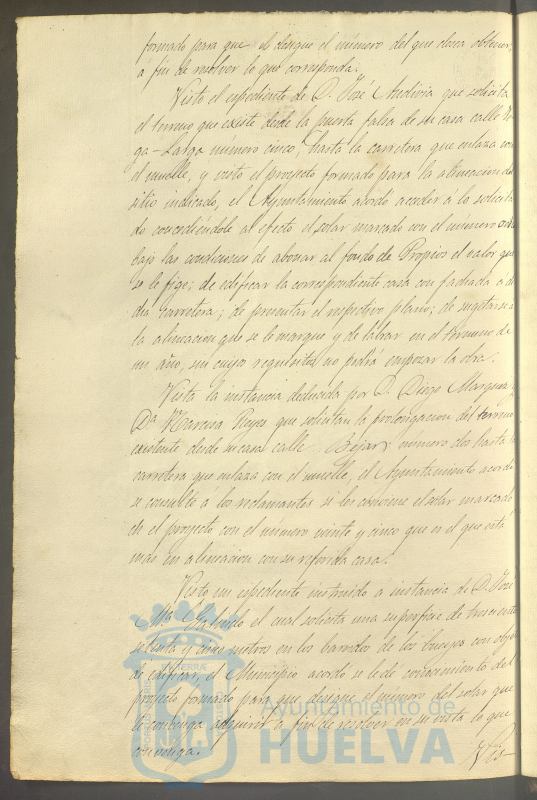 formado para que designe el número del que desea obtener,
á fin de resolver lo que corresponda.
Visto el espediente de D. José Audivia que solicita
el terreno que existe desde la puerta falsa de su casa calle
ga-Larga número cinco, hasta la carretera que enlaza con
el muelle, y visto el proyecto formado para la alineacion del
sitio indicado, el Ayuntamiento acordó acceder á lo solicita
do concediéndole al efecto el solar marcado con el número
bajo las condiciones de abonar al fondo de Propios el valor que
se le fige; de edificar la correspondiente casa con fachada á
dha carretera; de presentar el respectivo plano; de sugetarse á
la alineacion que se le marque y de labrar en el término de
un año, sin cuyos requisitos no podrá empezar la obra.
Vista la instancia deducida por D. Diego Marquez y
Dª Narcisa Reyes que solicitan la prolongacion del terreno
existente desde su casa calle Bejar número dos hasta la
carretera que enlaza con el muelle, el Ayuntamiento acordó
se consulte á los reclamantes si les conviene el solar marcado
en el proyecto con el número veinte y cinco que es el que está
mas en alineacion con su referida casa.
Visto un espediente instruido a instancia de D. José
Mª Galindo el cual solicita una superficie de
setenta y cinco metros en los barridos de los con obje
de edificar, el Municipio acordo se le dé conocimiento del
proyecto formado para que designe el número del solar que
le convenga adquirir a fin de resolver en su vista lo que
convenga.
Vis-
Ayuntamiento de
HUELVA